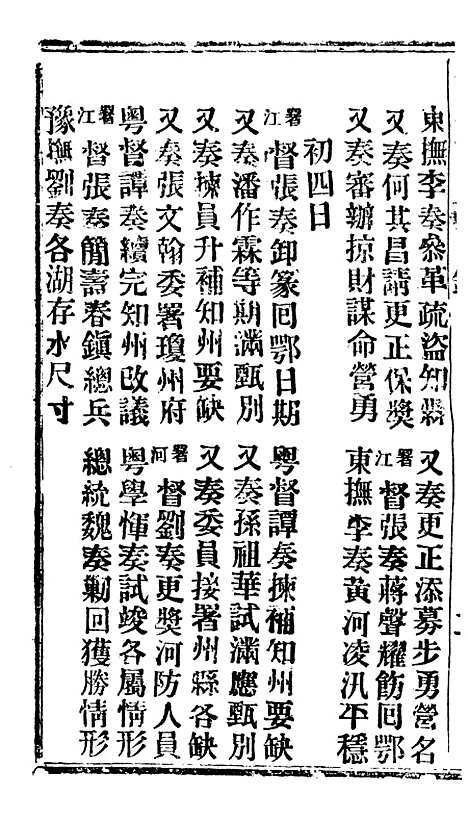 東撫李奏叅革疏盜知縣
又奏更正添募步勇營名
又奏何其昌請更正保獎
署江督張奏蔣聲耀飭回鄂
又奏審辦掠財謀命營勇
東撫李奏黃河凌汛平穩
初四日
署江督張奏卸篆回鄂日期
粵督譚奏揀補知州要缺
又奏潘作霖等期滿甄別
又奏孫祖華試滿應甄別
又奏揀員升補知州要缺
又奏委員接署州縣各缺
又奏張文翰委署瓊州府
署河督劉奏更獎河防人員
粵督譚奏續完知州改議
粵學惲奏試竣各屬情形
署江督張奏簡壽春鎮總兵
總統魏奏勦回獲勝情形
豫撫劉奏各湖存水尺寸